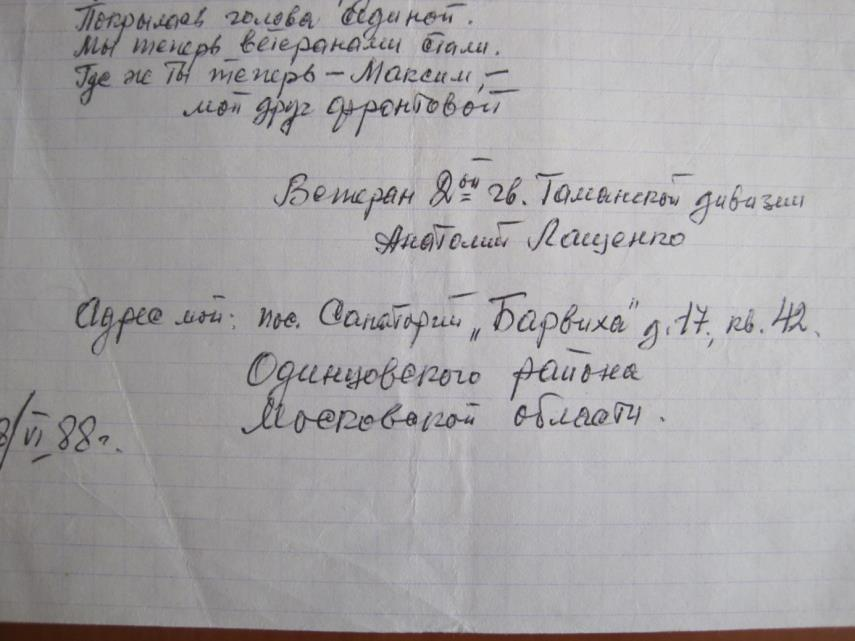 Покрылась голова сединой.
Мы теперь ветеранами стали.
Где ж Ты теперь – Максим, –
мой друг фронтовой
Ветеран 2ой гв. Таманской дивизии
Анатолий Лащенко
Адрес мой: пос. Санаторий „Барвиха" д. 17, кв. 42.
Одинцовского района
Московской области.
8/VI 88 г.